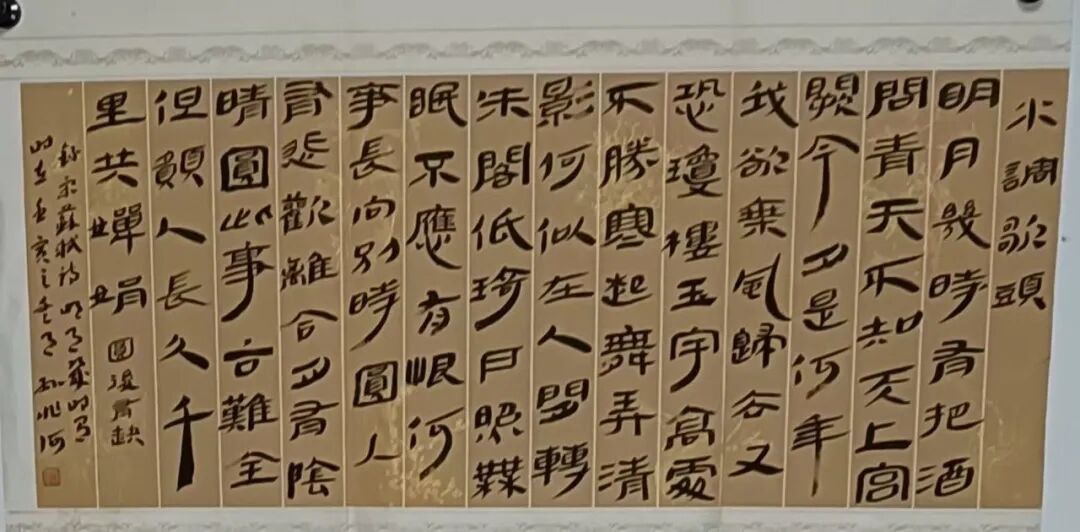 水調歌頭
明月幾時有把酒
問青天不知天上宮
闕今夕是何年
我欲乘風歸去又
恐瓊樓玉宇高處
不勝寒起舞弄清
影何似在人間轉
朱閣低琦戶照無
眠不應有恨何
事長向別時圓人
有悲歡離合月有陰
晴圓此事古難全
但願人長久千
里共嬋娟 圓後有缺
宋蘇軾詩明月幾時有
時在亥之